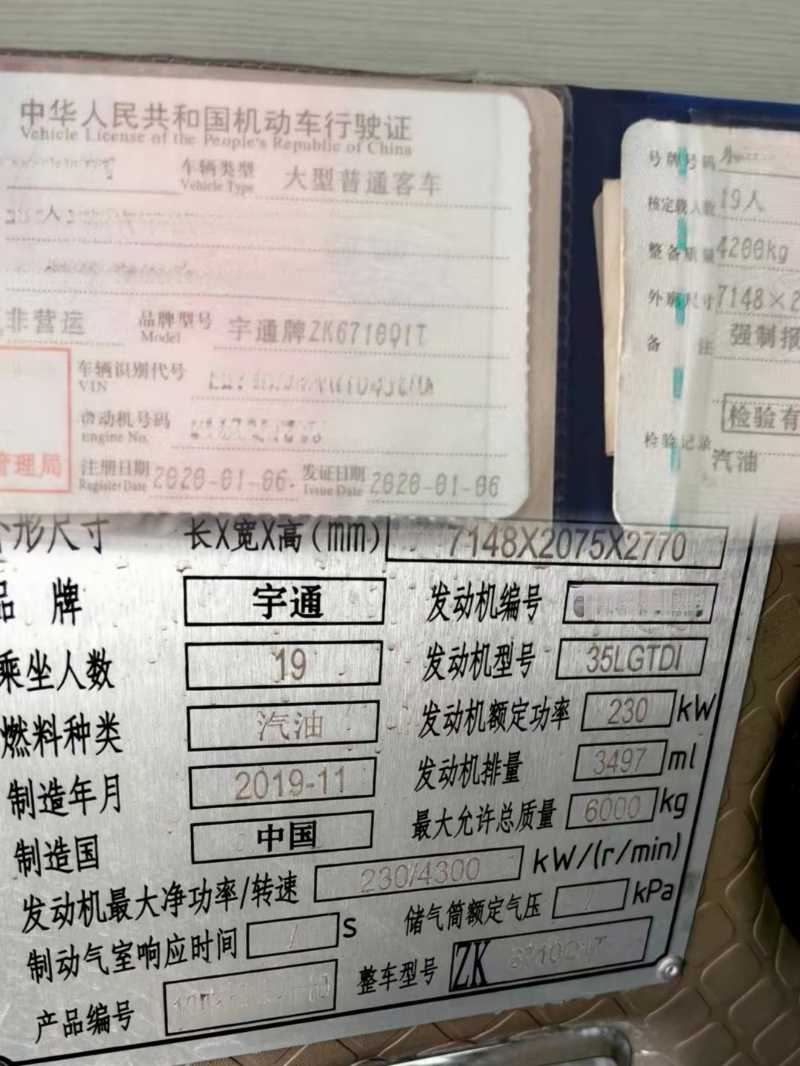 中华人民共和国机动车行驶证
Vehicle License of the People's Republic of China
车辆类型 大型普通客车
Vehicle Type
非营运 品牌型号 宇通牌ZK6710Q1T
Model
车辆识别代号
VIN
发动机号码
Engine No.
管理局 注册日期 2020-01-06 发证日期 2020-01-06
Register Date Issue Date
号牌号码
核定载人数 19人
整备质量 4200kg
外廓尺寸 7148×2
备 注 强制报
检验有
检验记录
汽油
外形尺寸 长X宽X高(mm) 7148X2075X2770
品 牌 宇通 发动机编号
乘坐人数 19 发动机型号 35LGTDI
燃料种类 汽油 发动机额定功率 230 kW
制造年月 2019-11 发动机排量 3497 ml
制造国 中国 最大允许总质量 6000 kg
发动机最大净功率/转速 230/4300 kW/(r/min)
制动气室响应时间 / S 储气筒额定气压 / kPa
产品编号 整车型号 ZK